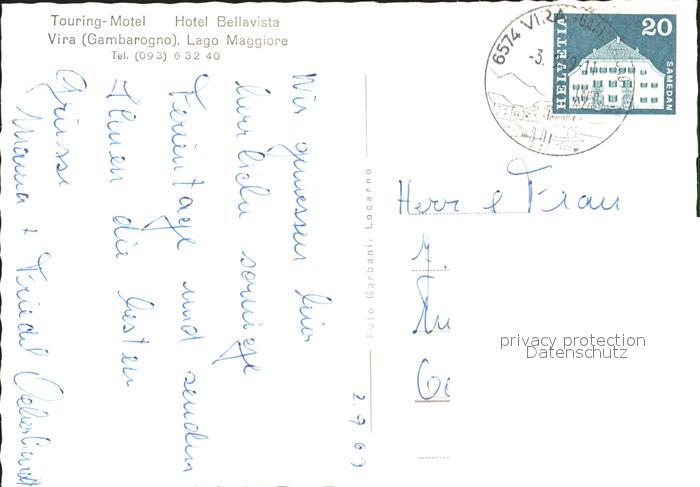 Touring-Motel Hotel Bellavista
Vira (Gambarogno), Lago Maggiore
Tel. (093) 6 32 40
Wir geniessen hier
herrliche sonnige
Ferientage und senden
Ihnen die besten
Grüsse
Mama + Friedel
2.9.69
Foto Garbani, Locarno
6574 VIRA
-3.
HELVETIA
20
SAMEDAN
Herr & Frau
privacy protection
Datenschutz